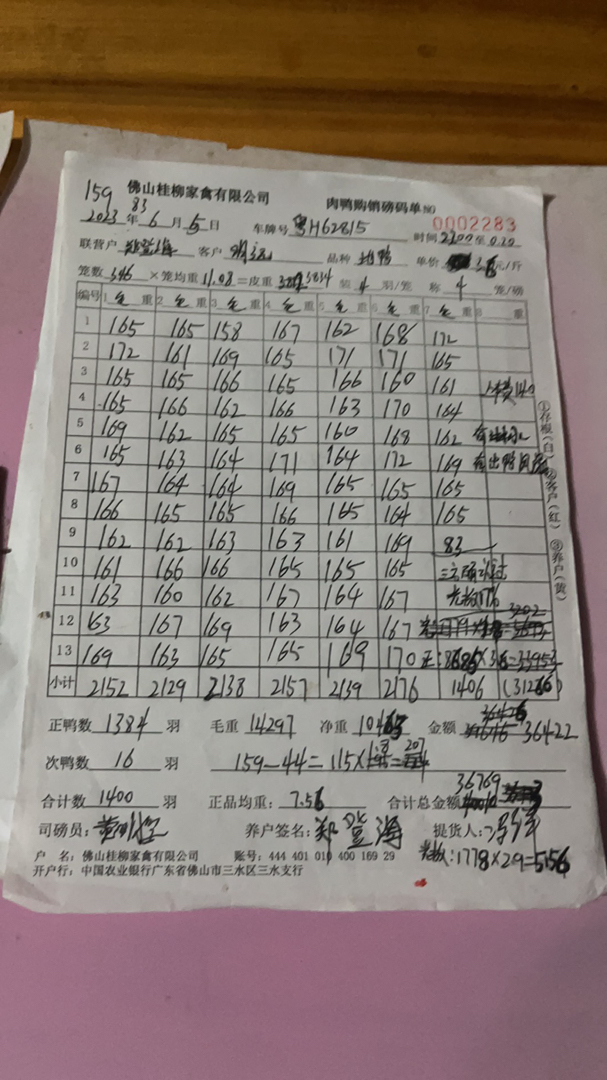 159 佛山桂柳家禽有限公司 肉鸭购销磅码单 NO
83
2023年6月5日 车牌号 粤H62815 0002283
时间 2300至0.20
联营户 郑登海 客户 品种 单价 3.6元/斤
笼数 346 ×笼均重 11.08=皮重 3834 装 4 羽/笼 称 4 笼/磅
编号 1 毛 重 2 毛 重 3 毛 重 4 毛 重 5 毛 重 6 毛 重 7 毛 重 8 重
1 165 165 158 167 162 168 172
2 172 161 169 165 171 171 165
3 165 165 166 165 166 160 161
4 165 166 162 166 163 170 164
5 169 162 165 165 160 168 162
6 165 163 164 171 164 172 169
7 167 164 164 169 165 165 165
8 166 165 165 166 165 164 165
9 162 162 163 163 161 169 83
10 161 166 166 165 165 165
11 163 160 162 167 164 167
3202
12 163 167 169 163 164 167
13 169 163 165 165 169 170 正:8685×3.6=
小计 2152 2129 2138 2157 2139 2176 1406 (31266)
①存根(白)②客户(红)③养户(黄)
36426
正鸭数 1384 羽 毛重 14297 净重 金额 36422
次鸭数 16 羽 159-44=115×1.8=207
36769
合计数 1400 羽 正品均重: 7.56 合计总金额
司磅员: 养户签名: 郑登海 提货人:
户 名: 佛山桂柳家禽有限公司 账号: 444 401 010 400 169 29
:1778×2.9=5156
开户行: 中国农业银行广东省佛山市三水区三水支行